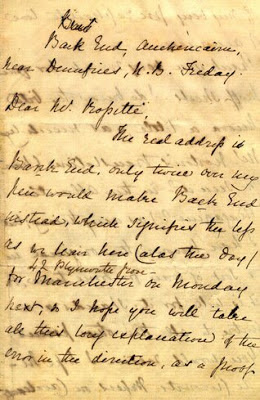 Bank
Back End, Auchencairn,
near Dumfries, N.B. Friday.
Dear Mr Rossetti,
The real address is
Bank End, only twice over my
pen would make Back End
instead, which signifies the less
as we leave here (alas the day)
42 Plymouth Grove
for Manchester on Monday
next, so I hope you will take
all this long explanation of the
error in the direction, as a proof